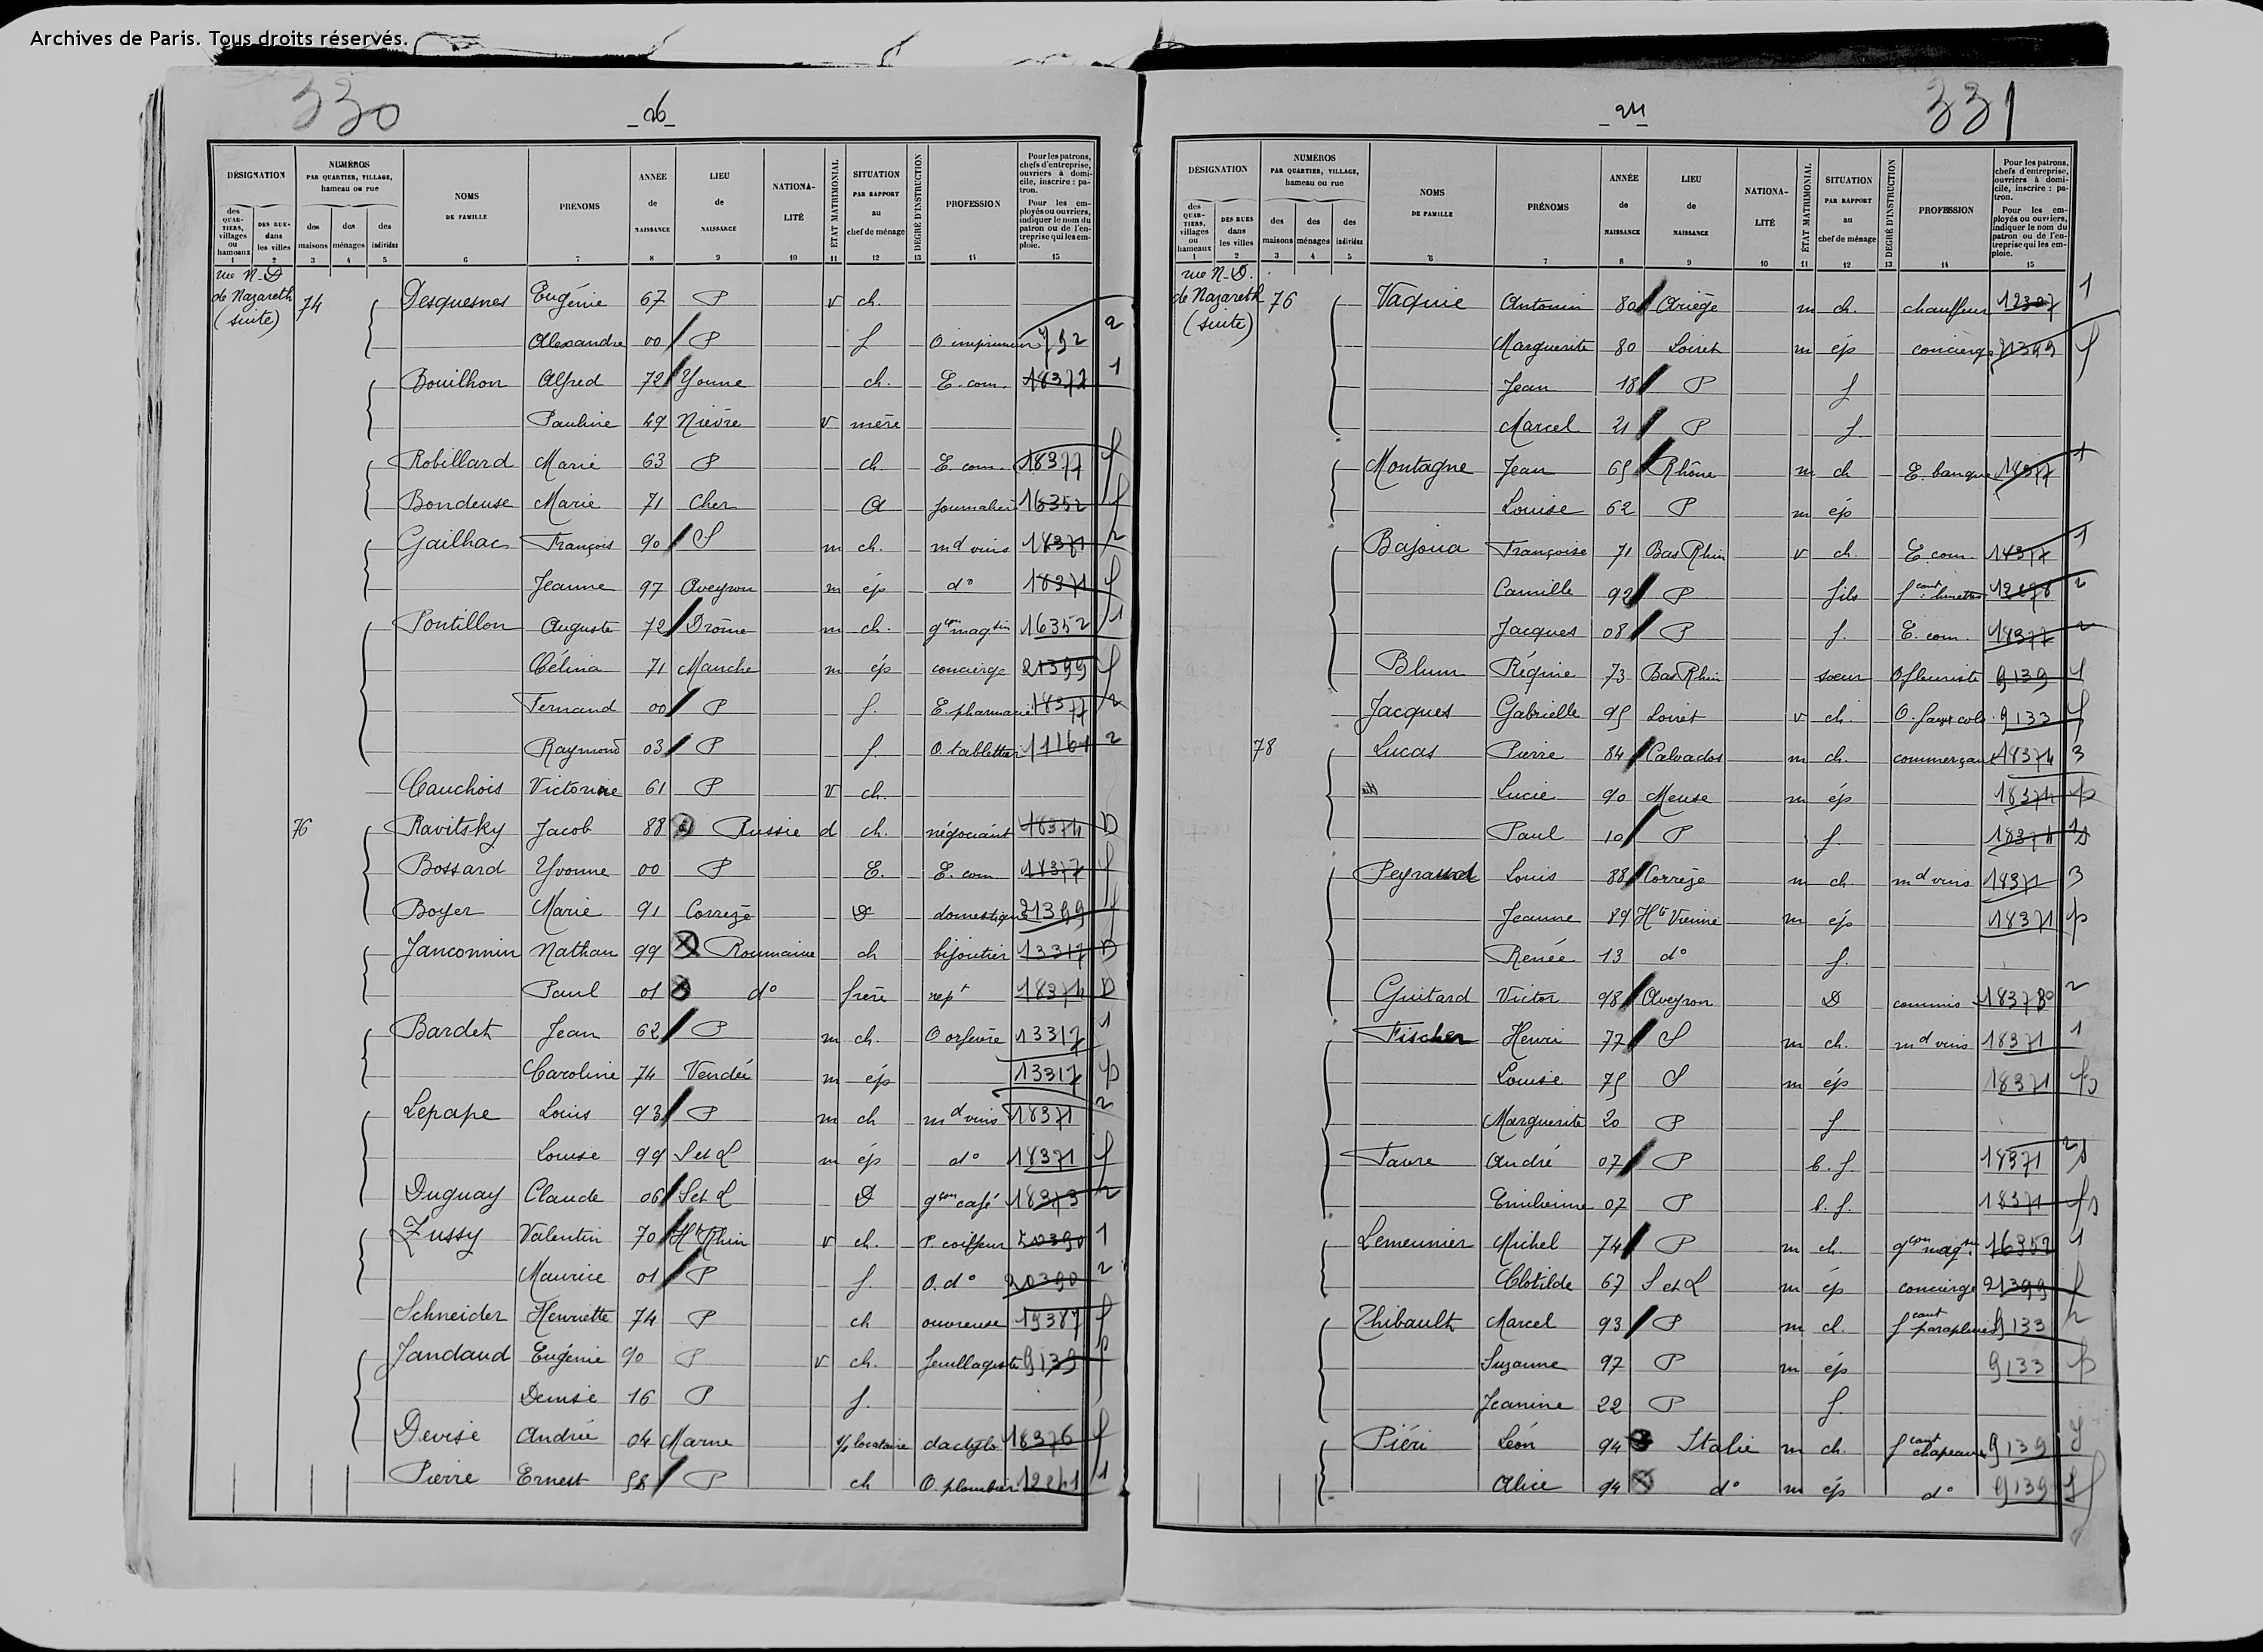 Archives de Paris. Tous droits réservés.
330
26
DÉSIGNATION
des QUARTIERS, villages ou hameaux
DES RUES dans les villes
NUMÉROS PAR QUARTIER, VILLAGE, hameau ou rue
des maisons
des ménages
des individus
NOMS DE FAMILLE
PRÉNOMS
ANNÉE de NAISSANCE
LIEU de NAISSANCE
NATIONALITÉ
ÉTAT MATRIMONIAL
SITUATION PAR RAPPORT au chef de ménage
DEGRÉ D'INSTRUCTION
PROFESSION
Pour les patrons, chefs d'entreprise, ouvriers à domicile, inscrire : patron.
Pour les employés ou ouvriers, indiquer le nom du patron ou de l'entreprise qui les emploie.
1 2 3 4 5 6 7 8 9 10 11 12 13 14 15
rue N.D. de Nazareth (suite)
74 Desquesnes Eugénie 67 P v ch.
Alexandre 00 P f O imprimeur 792 2
Bouilhon Alfred 72 Yonne ch. E. com. 18377 1
Pauline 49 Nièvre v mère
Robillard Marie 63 P ch. E. com. 18377 f
Bondeuse Marie 71 Cher A journalière 16352 f
Gailhac François 90 S m ch. md vins 18371 2
Jeanne 97 Aveyron m ép do 18371 f
Pontillon Auguste 72 Drôme m ch. gçon magsin 16352 1
Célina 71 Manche m ép concierge 21399 f
Fernand 00 P f. E. pharmacie 18377 2
Raymond 03 P f. O tabletter 11161 2
Cauchois Victorine 61 P v ch.
76 Ravitsky Jacob 88 Russie d ch. négociant 18374 D
Bossard Yvonne 00 P E. E. com. 18377 f
Boyer Marie 91 Corrèze D domestique 21399 f
Janconnin Nathan 99 Roumaine ch bijoutier 13317 D
Paul 01 do frère rept 18374 D
Bardet Jean 62 P m ch. O orfèvre 13317 1
Caroline 74 Vendée m ép 13317 fp
Lepape Louis 93 P m ch md vins 18371 2
Louise 99 S et L m ép do 18371 f
Duguay Claude 06 S et L D gçon café 18373 2
Zussy Valentin 70 Ht Rhin v ch. P. coiffeur 20390 1
Maurice 01 P f. O. do 20390 2
Schneider Henriette 74 P ch ouvreuse 19387 f
Jandaud Eugénie 90 P v ch. feuillagiste 9139
Denise 16 P f.
Devise Andrée 04 Marne s/locataire dactylo 18376 f
Pierre Ernest 98 P ch O plombier 12241 1
331
DÉSIGNATION
des QUARTIERS, villages ou hameaux
DES RUES dans les villes
NUMÉROS PAR QUARTIER, VILLAGE, hameau ou rue
des maisons
des ménages
des individus
NOMS DE FAMILLE
PRÉNOMS
ANNÉE de NAISSANCE
LIEU de NAISSANCE
NATIONALITÉ
ÉTAT MATRIMONIAL
SITUATION PAR RAPPORT au chef de ménage
DEGRÉ D'INSTRUCTION
PROFESSION
Pour les patrons, chefs d'entreprise, ouvriers à domicile, inscrire : patron.
Pour les employés ou ouvriers, indiquer le nom du patron ou de l'entreprise qui les emploie.
1 2 3 4 5 6 7 8 9 10 11 12 13 14 15
rue N.D. de Nazareth (suite)
76 Vaquié Antonin 80 Ariège m ch. chauffeur 12307 1
Marguerite 80 Loiret m ép concierge 21399 f
Jean 18 P f
Marcel 21 P f.
Montagne Jean 65 Rhône m ch E. banque 18377 1
Louise 62 P m ép
Bajoua Françoise 71 Bas Rhin v ch. E. com. 18377 1
Camille 92 P fils fcant lunettes 2
Jacques 08 P f. E. com. 18377 2
Blum Régine 73 Bas Rhin soeur O fleuriste 9139 f
Jacques Gabrielle 95 Loiret v ch. 9133 f
78 Lucas Pierre 84 Calvados m ch. commerçant 18374 3
Lucie 90 Meuse m ép 18374 fp
Paul 10 P f. 18374
Peyraud Louis 88 Corrèze m ch. md vins 18371 3
Jeanne 89 Hte Vienne m ép 18371 fp
Renée 13 do f.
Guitard Victor 98 Aveyron D commis 2
Fischer Henri 77 S m ch. md vins 18371 1
Louise 75 S m ép 18371 fp
Marguerite 20 P f
Favre André 07 P b. f. 18371
Emilienne 07 P b. f. 18371
Lemeunier Michel 74 P m ch gçon magsin 16352 1
Clotilde 67 S et L m ép concierge 21399 f
Thibault Marcel 93 P m ch. fcant parapluies 9133 2
Suzanne 97 P m ép 9133 fp
Jeanine 22 P f.
Piéri Léon 94 Italie m ch fcant chapeaux 9139
Alice 94 do m ép do 9139